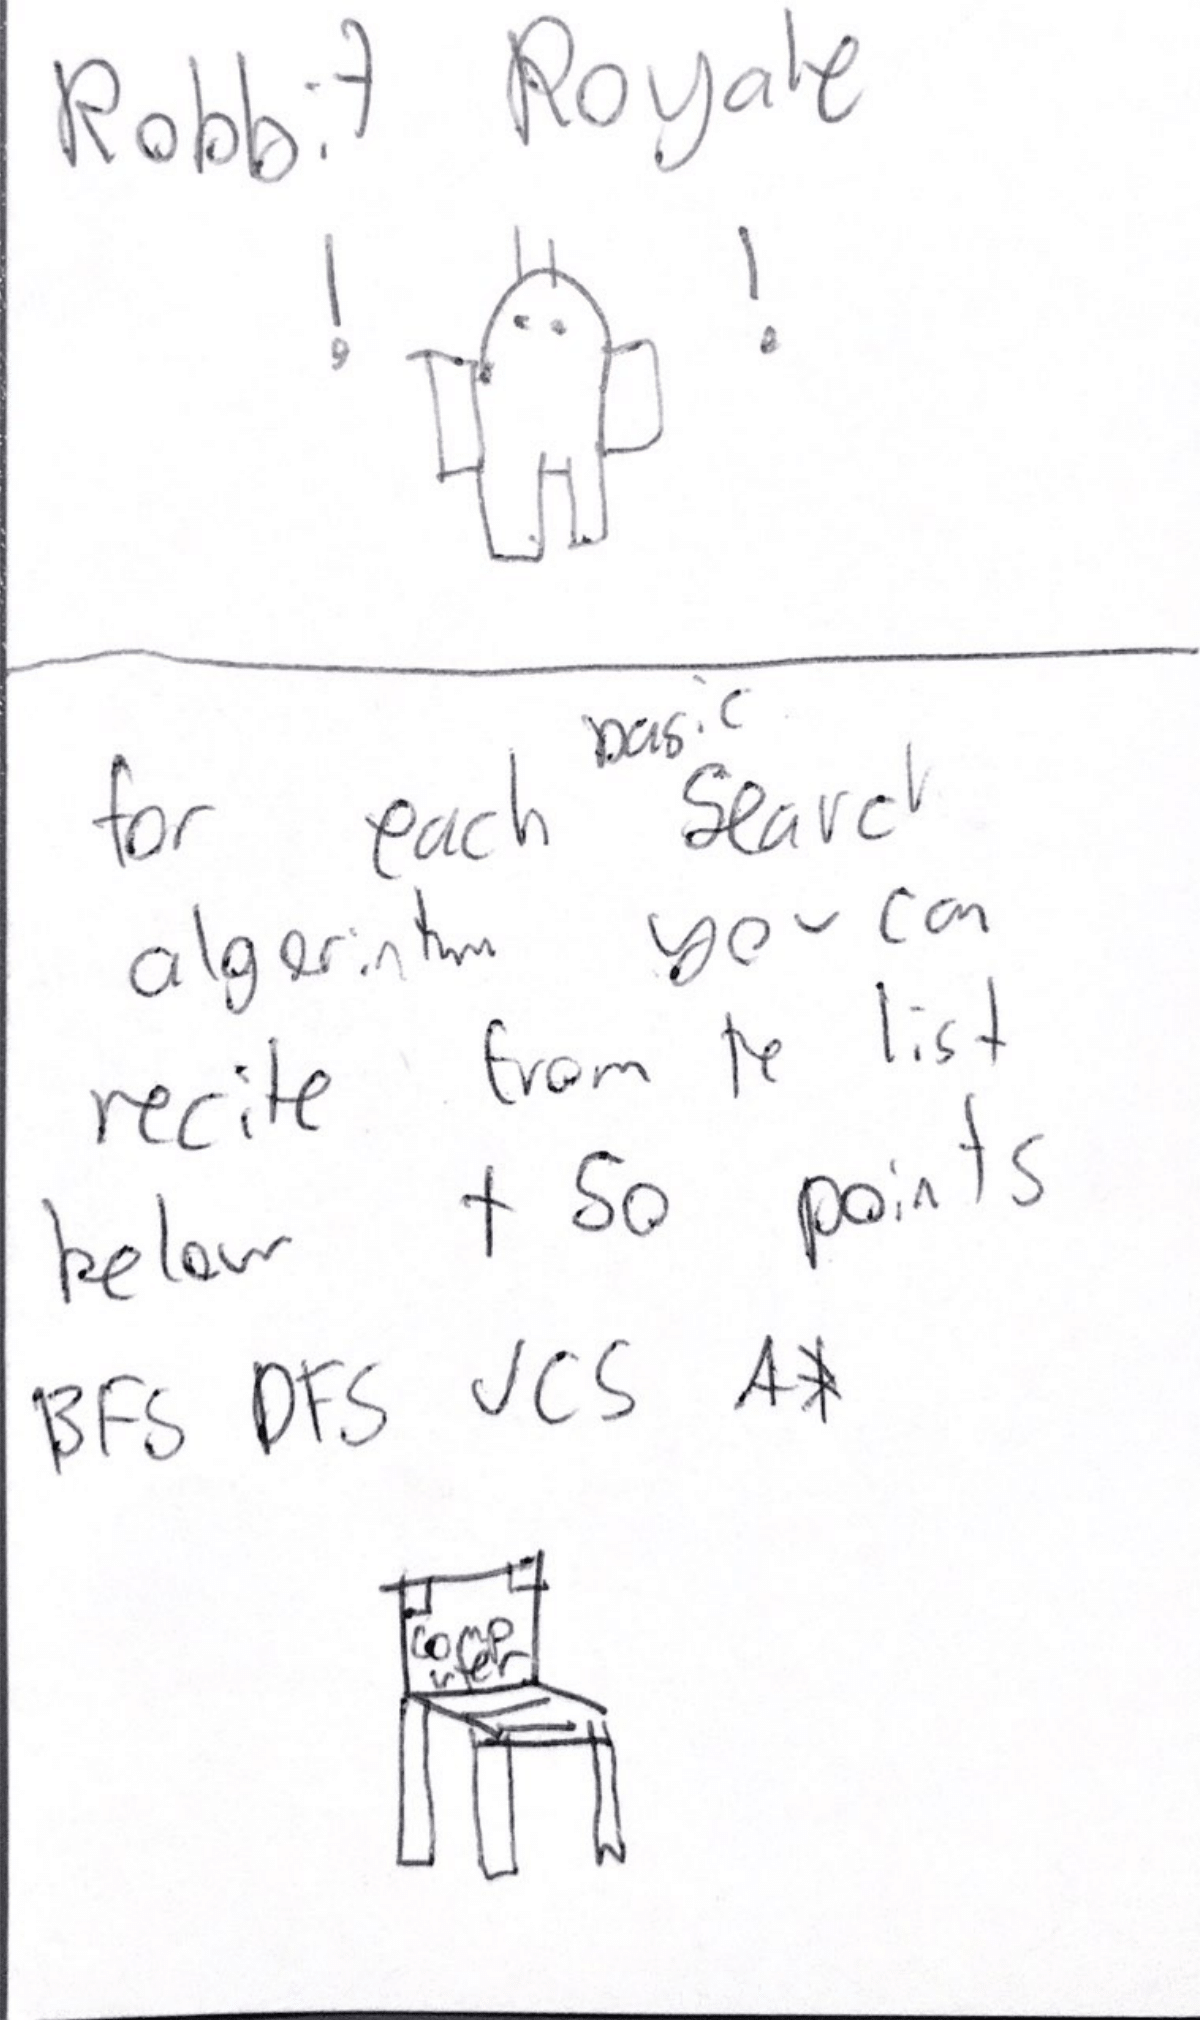 Robbit Royale
! !
basic
for each Search
algerithm you can
recite from the list
below + 50 points
BFS DFS UCS A*
comp
uter